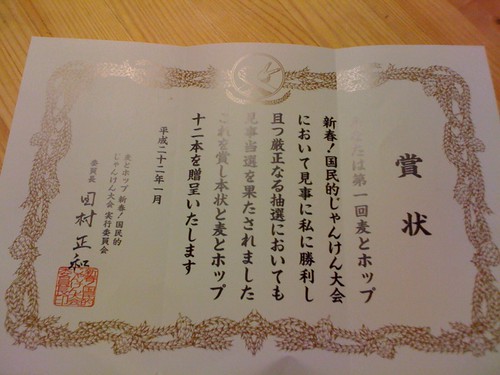 賞状
あなたは第一回麦とホップ
新春!国民的じゃんけん大会
において見事に私に勝利し
且つ厳正なる抽選においても
見事当選を果たされました
これを賞し本状と麦とホップ
十二本を贈呈いたします
平成二十二年一月
麦とホップ 新春!国民的
じゃんけん大会 実行委員会
委員長 田村正和